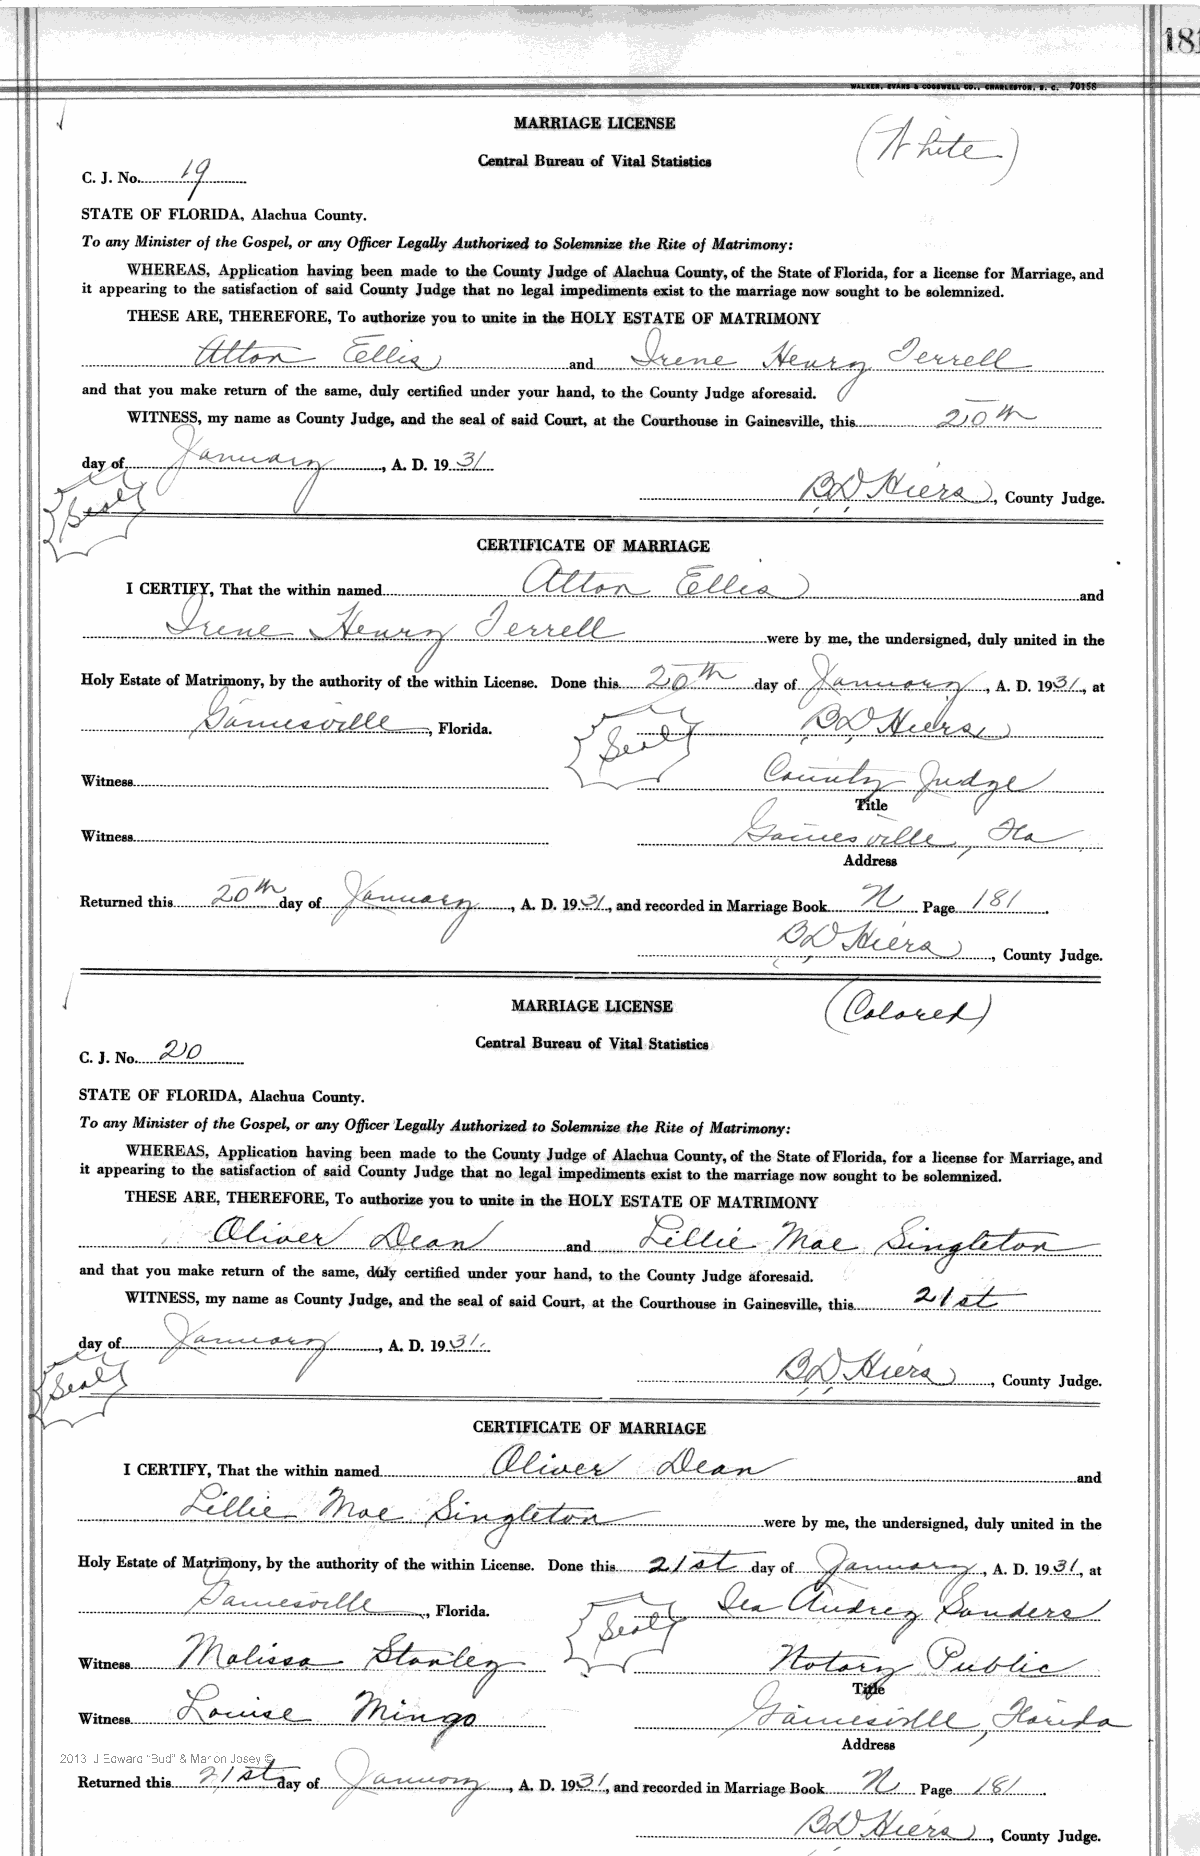 181
WALKER, EVANS & COGSWELL CO., CHARLESTON, S. C. 70158
MARRIAGE LICENSE
(White)
Central Bureau of Vital Statistics
C. J. No. 19
STATE OF FLORIDA, Alachua County.
To any Minister of the Gospel, or any Officer Legally Authorized to Solemnize the Rite of Matrimony:
WHEREAS, Application having been made to the County Judge of Alachua County, of the State of Florida, for a license for Marriage, and
it appearing to the satisfaction of said County Judge that no legal impediments exist to the marriage now sought to be solemnized.
THESE ARE, THEREFORE, To authorize you to unite in the HOLY ESTATE OF MATRIMONY
Alton Ellis and Irene Henry Terrell
and that you make return of the same, duly certified under your hand, to the County Judge aforesaid.
WITNESS, my name as County Judge, and the seal of said Court, at the Courthouse in Gainesville, this 20th
day of January, A. D. 1931
Seal
B D Hiers, County Judge.
CERTIFICATE OF MARRIAGE
I CERTIFY, That the within named Alton Ellis and
Irene Henry Terrell were by me, the undersigned, duly united in the
Holy Estate of Matrimony, by the authority of the within License. Done this 20th day of January, A. D. 1931, at
Gainesville, Florida. Seal B D Hiers
Witness County Judge
Title
Witness Gainesville, Fla
Address
Returned this 20th day of January, A. D. 1931, and recorded in Marriage Book N Page 181.
B D Hiers, County Judge.
MARRIAGE LICENSE
(Colored)
Central Bureau of Vital Statistics
C. J. No. 20
STATE OF FLORIDA, Alachua County.
To any Minister of the Gospel, or any Officer Legally Authorized to Solemnize the Rite of Matrimony:
WHEREAS, Application having been made to the County Judge of Alachua County, of the State of Florida, for a license for Marriage, and
it appearing to the satisfaction of said County Judge that no legal impediments exist to the marriage now sought to be solemnized.
THESE ARE, THEREFORE, To authorize you to unite in the HOLY ESTATE OF MATRIMONY
Oliver Dean and Lillie Mae Singleton
and that you make return of the same, duly certified under your hand, to the County Judge aforesaid.
WITNESS, my name as County Judge, and the seal of said Court, at the Courthouse in Gainesville, this 21st
day of January, A. D. 1931.
Seal
B D Hiers, County Judge.
CERTIFICATE OF MARRIAGE
I CERTIFY, That the within named Oliver Dean and
Lillie Mae Singleton were by me, the undersigned, duly united in the
Holy Estate of Matrimony, by the authority of the within License. Done this 21st day of January, A. D. 1931, at
Gainesville, Florida. Seal Iea Audrey Sanders
Witness Malissa Stanley Notary Public
Title
Witness Louise Mingo Gainesville, Florida
Address
2013 J Edward "Bud" & Marion Josey ©
Returned this 21st day of January, A. D. 1931, and recorded in Marriage Book N Page 181.
B D Hiers, County Judge.